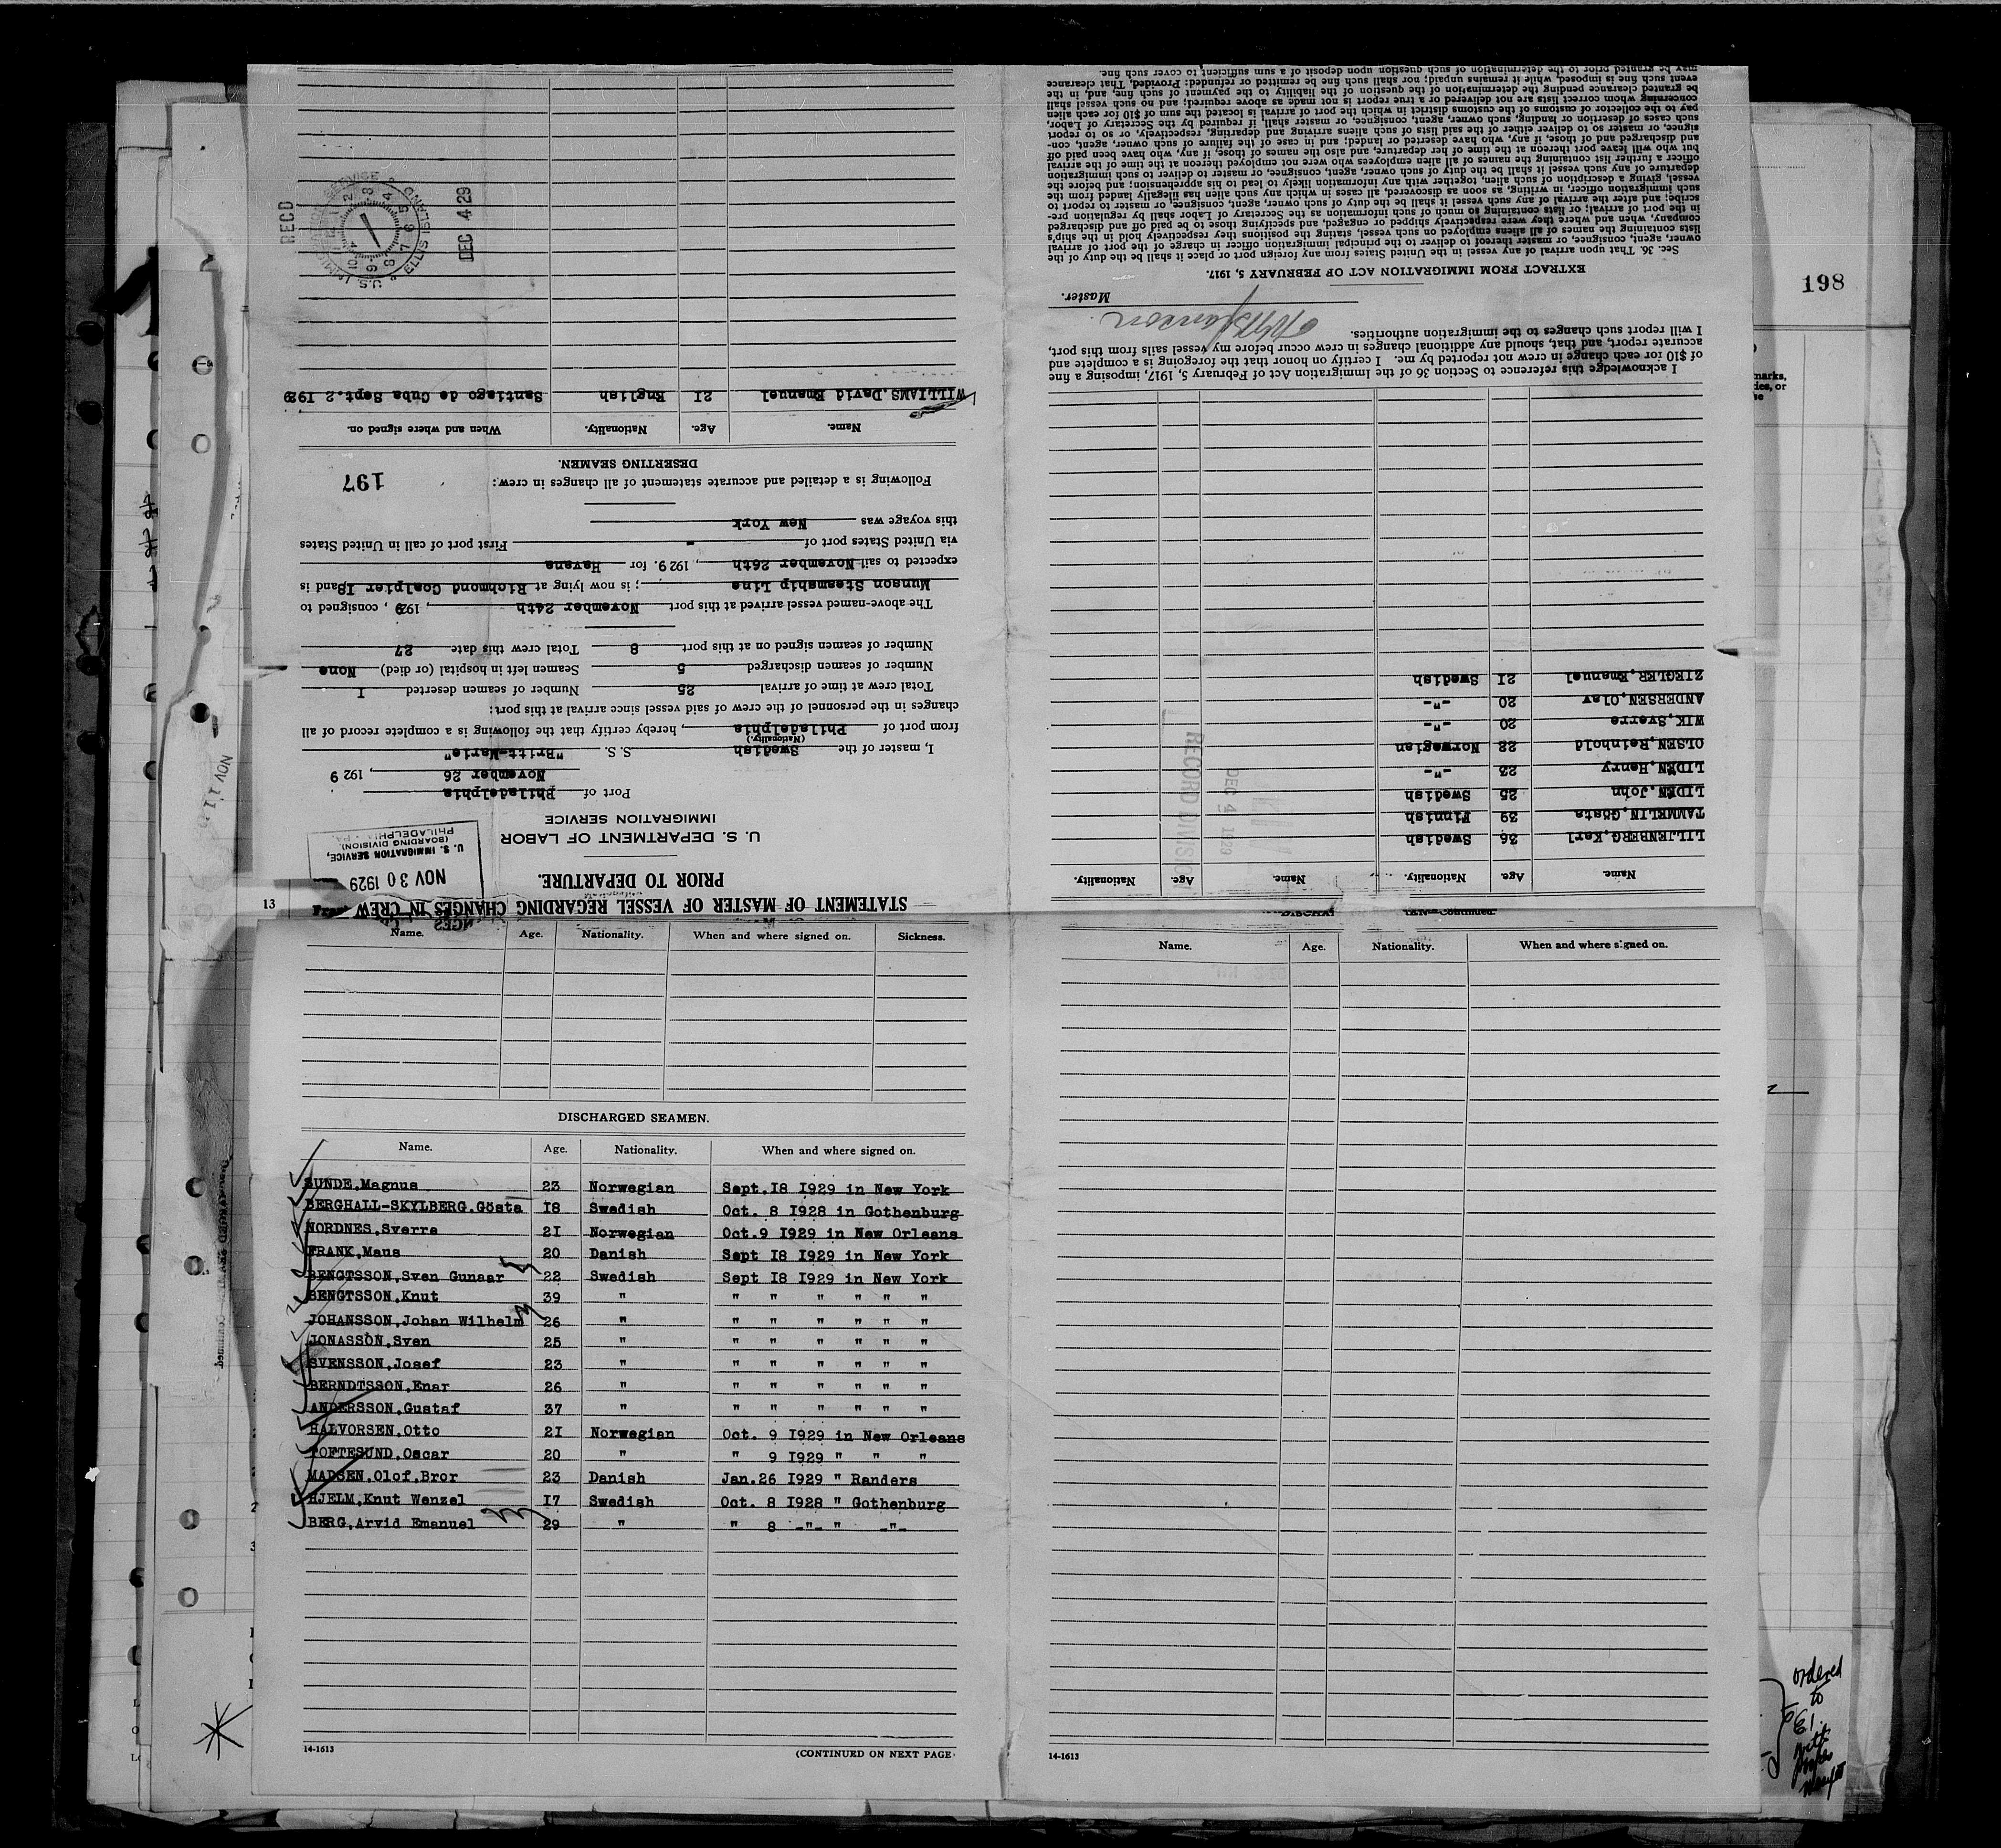 198
STATEMENT OF MASTER OF VESSEL REGARDING CHANGES IN CREW
PRIOR TO DEPARTURE.
NOV 30 1929
U. S. IMMIGRATION SERVICE,
(BOARDING DIVISION),
PHILADELPHIA - PA.
13
U. S. DEPARTMENT OF LABOR
IMMIGRATION SERVICE
Port of Philadelphia
November 26, 1929
I, master of the Swedish S. S. "Britt-Marie"
(Nationality.)
from port of Philadelphia, hereby certify that the following is a complete record of all
changes in the personnel of the crew of said vessel since arrival at this port:
Total crew at time of arrival 25 Number of seamen deserted I
Number of seamen discharged 5 Seamen left in hospital (or died) None
Number of seamen signed on at this port 8 Total crew this date 27
The above-named vessel arrived at this port November 24th, 1929, consigned to
Munson Steamship Line; is now lying at Richmond Coalpier I8 and is
expected to sail November 26th, 1929. for Havana
via United States port of - First port of call in United States
this voyage was New York
Following is a detailed and accurate statement of all changes in crew:
197
DESERTING SEAMEN.
Name. Age. Nationality. When and where signed on.
WILLIAMS, David Emanuel 2I English Santiago de Cuba Sept. 2 I929
RECD
U.S. IMMIGRATION SERVICE ELLIS ISLAND
DEC 4 29
Name. Age. Nationality. Name. Age. Nationality.
LILJENBERG, Karl 36 Swedish
TAMMELIN, Gösta 39 Finnish
LIDEN, John 25 Swedish
LIDEN, Henry 23 -"-
OLSEN, Reinhold 22 Norwegian
WIK, Sverre 20 -"-
ANDERSEN, Olav 20 -"-
ZIEGLER, Emanuel 2I Swedish
RECORD DIVISION
DEC 4 1929
I acknowledge this reference to Section 36 of the Immigration Act of February 5, 1917, imposing a fine
of $10 for each change in crew not reported by me. I certify on honor that the foregoing is a complete and
accurate report, and that, should any additional changes in crew occur before my vessel sails from this port,
I will report such changes to the immigration authorities.
Master.
EXTRACT FROM IMMIGRATION ACT OF FEBRUARY 5, 1917.
Sec. 36. That upon arrival of any vessel in the United States from any foreign port or place it shall be the duty of the
owner, agent, consignee, or master thereof to deliver to the principal immigration officer in charge of the port of arrival
lists containing the names of all aliens employed on such vessel, stating the positions they respectively hold in the ship's
company, when and where they were respectively shipped or engaged, and specifying those to be paid off and discharged
in the port of arrival; or lists containing so much of such information as the Secretary of Labor shall by regulation pre-
scribe; and after the arrival of any such vessel it shall be the duty of such owner, agent, consignee, or master to report to
such immigration officer, in writing, as soon as discovered, all cases in which any such alien has illegally landed from the
vessel, giving a description of such alien, together with any information likely to lead to his apprehension; and before the
departure of any such vessel it shall be the duty of such owner, agent, consignee, or master to deliver to such immigration
officer a further list containing the names of all alien employees who were not employed thereon at the time of the arrival
but who will leave port thereon at the time of her departure, and also the names of those, if any, who have been paid off
and discharged and of those, if any, who have deserted or landed; and in case of the failure of such owner, agent, con-
signee, or master so to deliver either of the said lists of such aliens arriving and departing, respectively, or so to report
such cases of desertion or landing, such owner, agent, consignee, or master shall, if required by the Secretary of Labor,
pay to the collector of customs of the customs district in which the port of arrival is located the sum of $10 for each alien
concerning whom correct lists are not delivered or a true report is not made as above required; and no such vessel shall
be granted clearance pending the determination of the question of the liability to the payment of such fine, and, in the
event such fine is imposed, while it remains unpaid; nor shall such fine be remitted or refunded: Provided, That clearance
may be granted prior to the determination of such question upon deposit of a sum sufficient to cover such fine.
Name. Age. Nationality. When and where signed on. Sickness.
DISCHARGED SEAMEN.
Name. Age. Nationality. When and where signed on.
SUNDE,Magnus 23 Norwegian Sept.I8 I929 in New York
BERGHALL-SKYLBERG.Gösta I8 Swedish Oct. 8 I928 in Gothenburg
NORDNES,Sverre 2I Norwegian Oct.9 I929 in New Orleans
FRANK,Maus 20 Danish Sept I8 I929 in New York
BENGTSSON,Sven Gunaar 22 Swedish Sept I8 I929 in New York
BENGTSSON,Knut 39 " " " " " " "
JOHANSSON,Johan Wilhelm 26 " " " " " " "
JONASSON,Sven 25 " " " " " " "
SVENSSON,Josef 23 " " " " " " "
BERNDTSSON,Enar 26 " " " " " " "
ANDERSSON,Gustaf 37 " " " " " " "
HALVORSEN,Otto 2I Norwegian Oct. 9 I929 in New Orleans
TOFTESUND,Oscar 20 " " 9 I929 " " "
MADSEN,Olof,Bror 23 Danish Jan.26 I929 " Randers
HJELM,Knut Wenzel I7 Swedish Oct. 8 I928 " Gothenburg
BERG,Arvid Emanuel 29 " " 8 -"- " -"-
14-1613
(CONTINUED ON NEXT PAGE
Name. Age. Nationality. When and where signed on.
14-1613
ordered
to
E I.
with